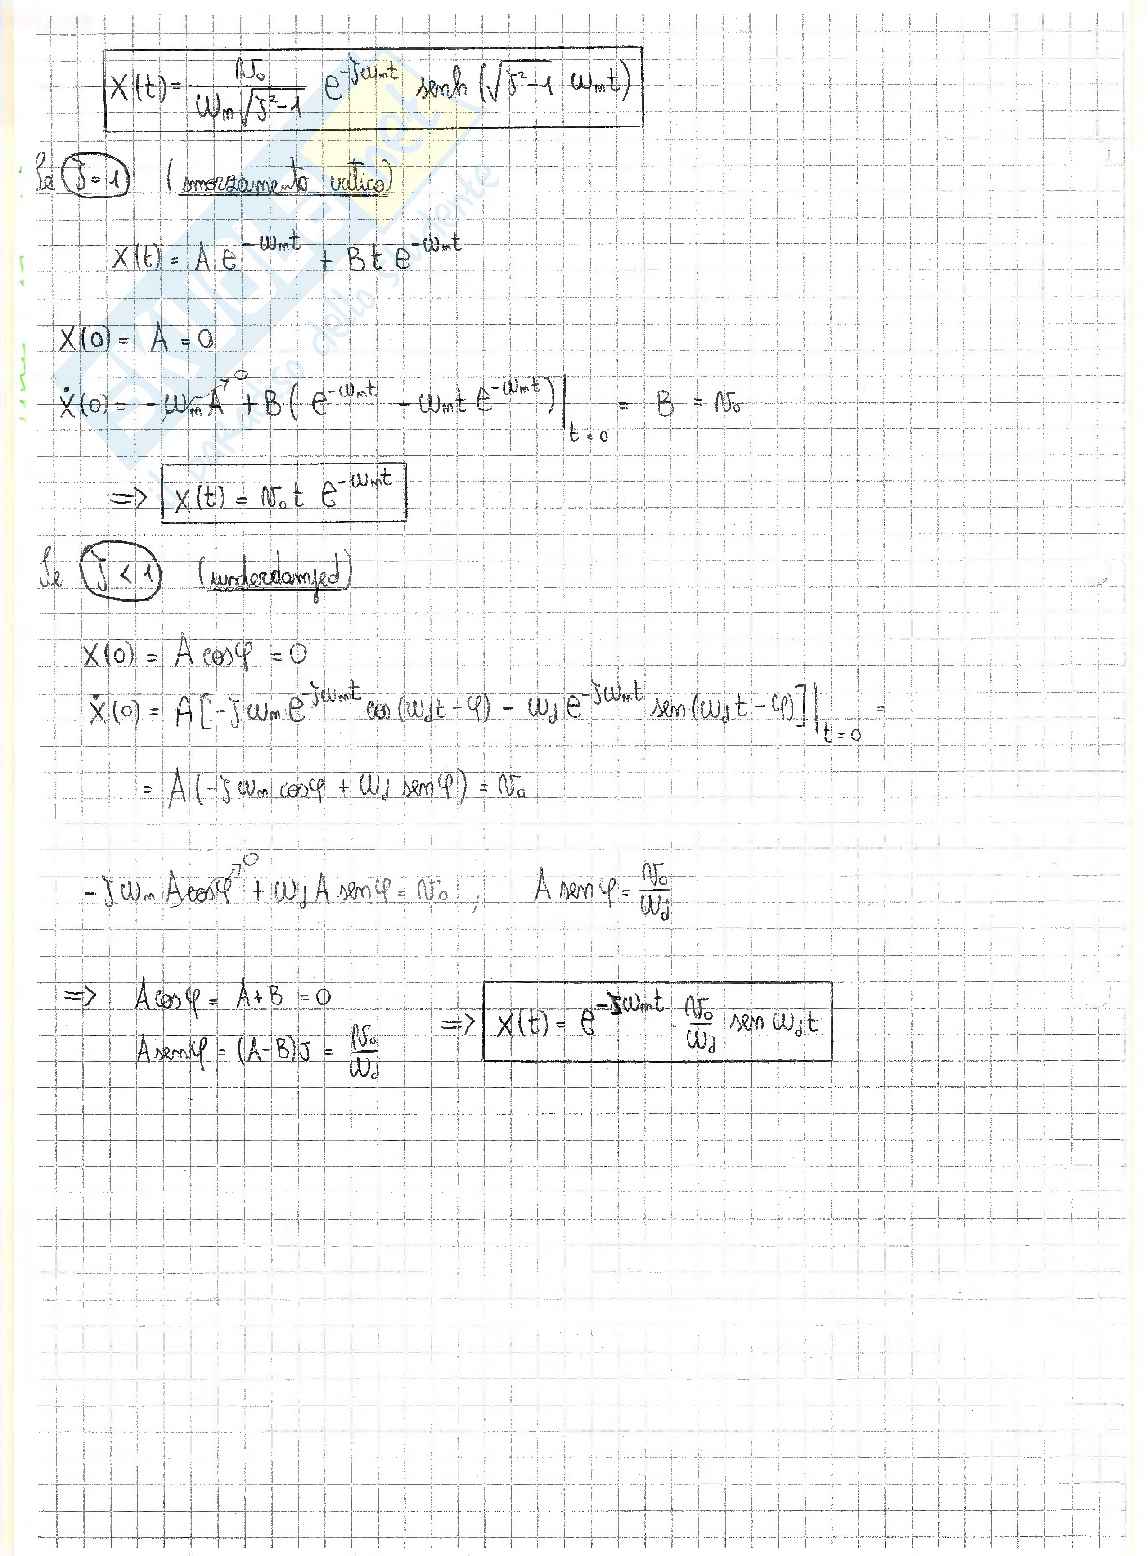 x(t) = v₀ / (ωₙ√(ζ²-1)) e^(-ζωₙt) senh (√(ζ²-1) ωₙt)
Se ζ=1 (smorzamento critico)
x(t) = A e^(-ωₙt) + B t e^(-ωₙt)
x(0) = A = 0
ẋ(0) = -ωₙA→0 + B ( e^(-ωₙt) - ωₙt e^(-ωₙt) ) |t=0 = B = v₀
=> x(t) = v₀ t e^(-ωₙt)
Se ζ < 1 (underdamped)
x(0) = A cosφ = 0
ẋ(0) = A [-ζωₙ e^(-ζωₙt) cos(ω_d t - φ) - ω_d e^(-ζωₙt) sen(ω_d t - φ)] |t=0 =
= A (-ζωₙ cosφ + ω_d senφ) = v₀
-ζωₙ A cosφ→0 + ω_d A senφ = v₀ ; A senφ = v₀/ω_d
=> A cosφ = A+B = 0
A senφ = (A-B)J = v₀/ω_d => x(t) = e^(-ζωₙt) v₀/ω_d sen ω_d t